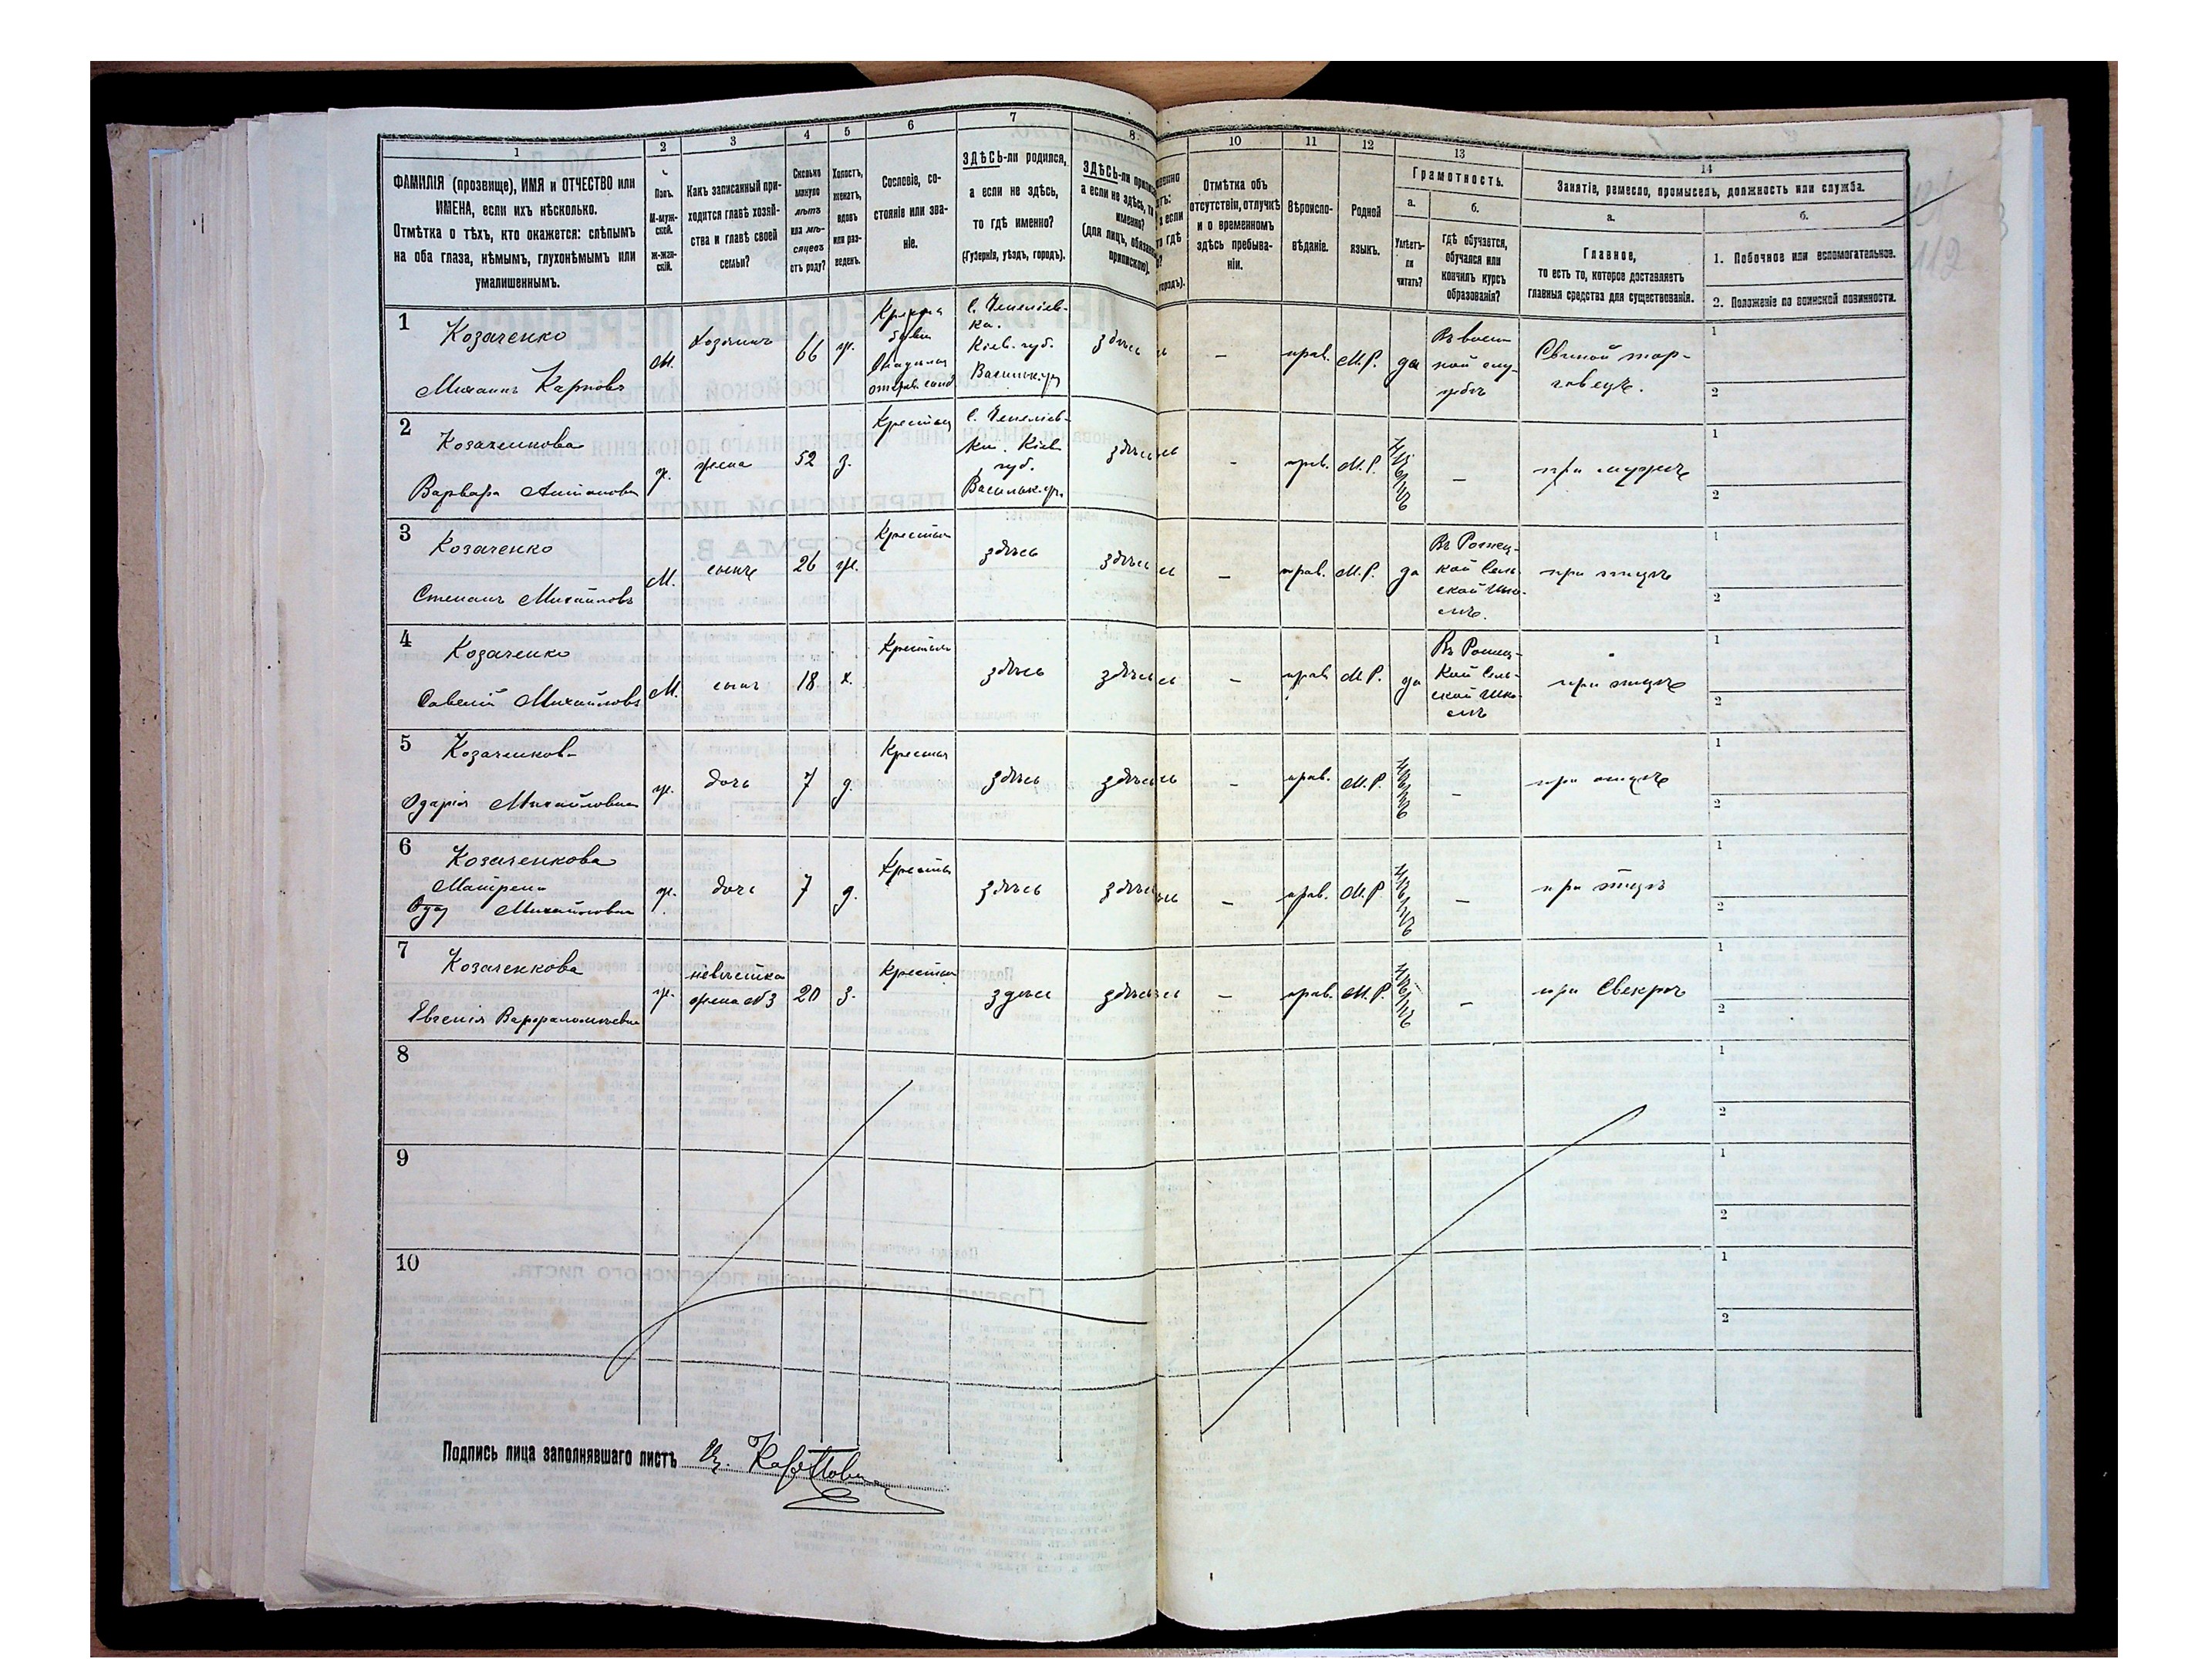 1
ФАМИЛІЯ (прозвище), ИМЯ и ОТЧЕСТВО или
ИМЕНА, если ихъ нѣсколько.
Отмѣтка о тѣхъ, кто окажется: слѣпымъ
на оба глаза, нѣмымъ, глухонѣмымъ или
умалишеннымъ.
2
Полъ.
М-муж-
ской.
Ж-жен-
скій.
3
Какъ записанный при-
ходится главѣ хозяй-
ства и главѣ своей
семьи?
4
Сколько
минуло
лѣтъ
или мѣ-
сяцевъ
отъ роду?
5
Холостъ,
женатъ,
вдовъ
или раз-
веденъ.
6
Сословіе, со-
стояніе или зва-
ніе.
7
ЗДѢСЬ-ли родился,
а если не здѣсь,
то гдѣ именно?
(Губернія, уѣздъ, городъ).
8
ЗДѢСЬ-ли
а если не здѣсь,
именно?
(для лицъ,
припискою)
10
Отмѣтка объ
отсутствіи, отлучкѣ
и о временномъ
здѣсь пребыва-
ніи.
11
Вѣроиспо-
вѣданіе.
12
Родной
языкъ.
13
Грамотность.
а.
Умѣетъ-
ли
читать?
б.
гдѣ обучается,
обучался или
кончилъ курсъ
образованія?
14
Занятіе, ремесло, промыселъ, должность или служба.
а.
Главное,
то есть то, которое доставляетъ
главныя средства для существованія.
б.
1. Побочное или вспомогательное.
2. Положеніе по воинской повинности.
112
1
Козаченко
Михаилъ Карповъ
М.
Хозяинъ
66
ж.
С. Пепеліев-
ка.
Кіев. губ.
Васильк. у.
здѣсь
-
прав.
М.Р.
да
Въ воен-
ной слу-
жбѣ
Свиной тор-
говецъ.
1
2
2
Козаченкова
Варвара Антонова
ж.
жена
52
з.
Крестьян
С. Пепеліев-
ка Кіев
губ.
Васильк. у.
здѣсь
-
прав.
М.Р.
-
при мужѣ
1
2
3
Козаченко
Степанъ Михайловъ
М.
сынъ
26
ж.
Крестьян
здѣсь
здѣсь
-
прав.
М.Р.
да
Въ
кой Сель-
ской Шко-
лѣ.
при отцѣ
1
2
4
Козаченко
Савелій Михайловъ
М.
сынъ
18
х.
Крестьян
здѣсь
здѣсь
-
прав
М.Р.
да
Въ
кой Сель-
ской Шко-
лѣ
при отцѣ
1
2
5
Козаченков-
Одарія Михайловна
ж.
дочь
7
д.
Крестьян
здѣсь
здѣсь
-
прав.
М.Р.
-
при отцѣ
1
2
6
Козаченкова
Матрена
Михайловна
ж.
дочь
7
д.
Крестьян
здѣсь
здѣсь
-
прав.
М.Р.
-
при отцѣ
1
2
7
Козаченкова
Евгенія Варфаломѣевна
ж.
невѣстка
жена №3
20
з.
Крестьян
здѣсь
здѣсь
-
прав.
М.Р.
-
при Свекрѣ
1
2
8
1
2
9
1
2
10
1
2
Подпись лица заполнявшаго листъ